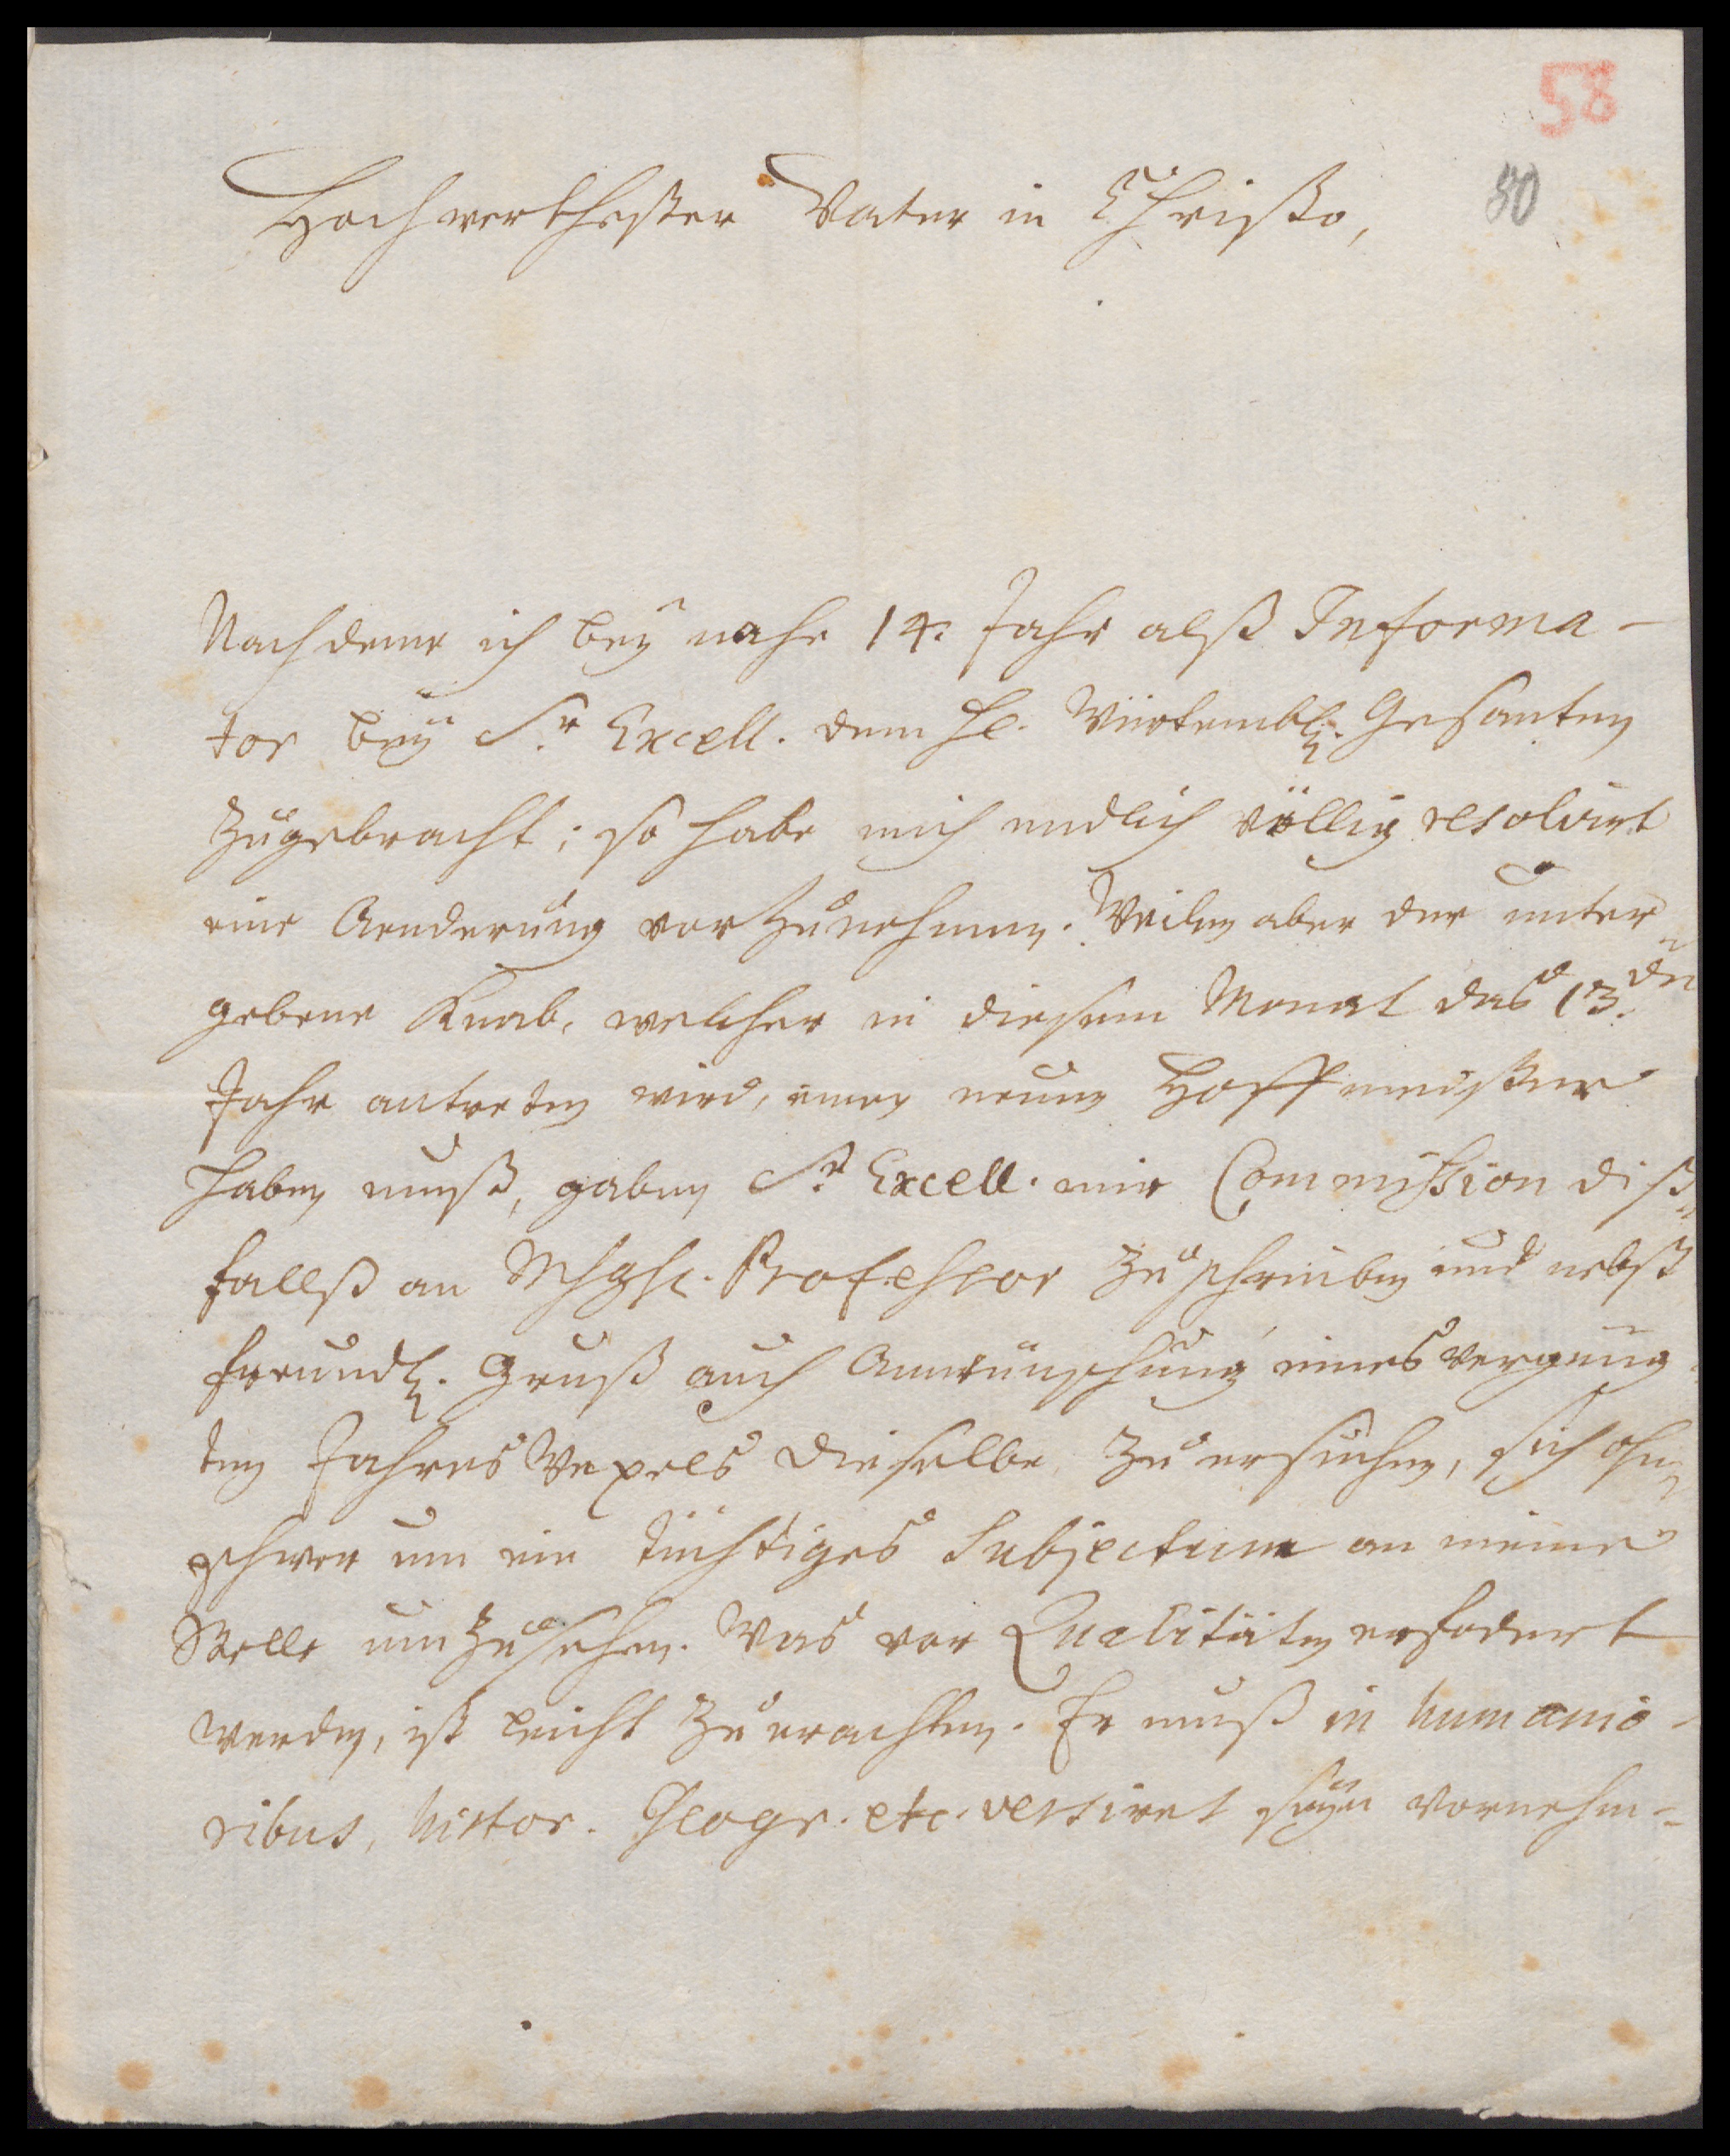 58
50
Hochwerthester Vater in Christo,
Nachdeme ich bey nahe 14. Jahr alß Informa-
tor beÿ Sr. Excell. dem H. Würtembl. Gesanten
zugebracht; so habe mich endlich völlig resolvirt
eine Aenderung vorzunehmen. Weilen aber der unter-
gebene Knab, welcher in diesem Monat das 13.de
Jahr antreten wird, einen neuen Hoffmeister
haben muß, gaben Sr. Excell. mir Commission diß-
fallß an Mhghl. Professor zu schreiben und nebst
freundl. Gruß auch Anwünschung eines vergnüg-
ten Jahres Wexels dieselbe zu ersuchen, sich ohn-
schwer um ein tüchtiges Subjectum an meine
Stelle umzusehen. Was vor Qualitäten erfodert
werden, ist leicht zu erachten. Er muß in humanio-
ribus, histor. Geogr. etc. versiret seyn vornehm-